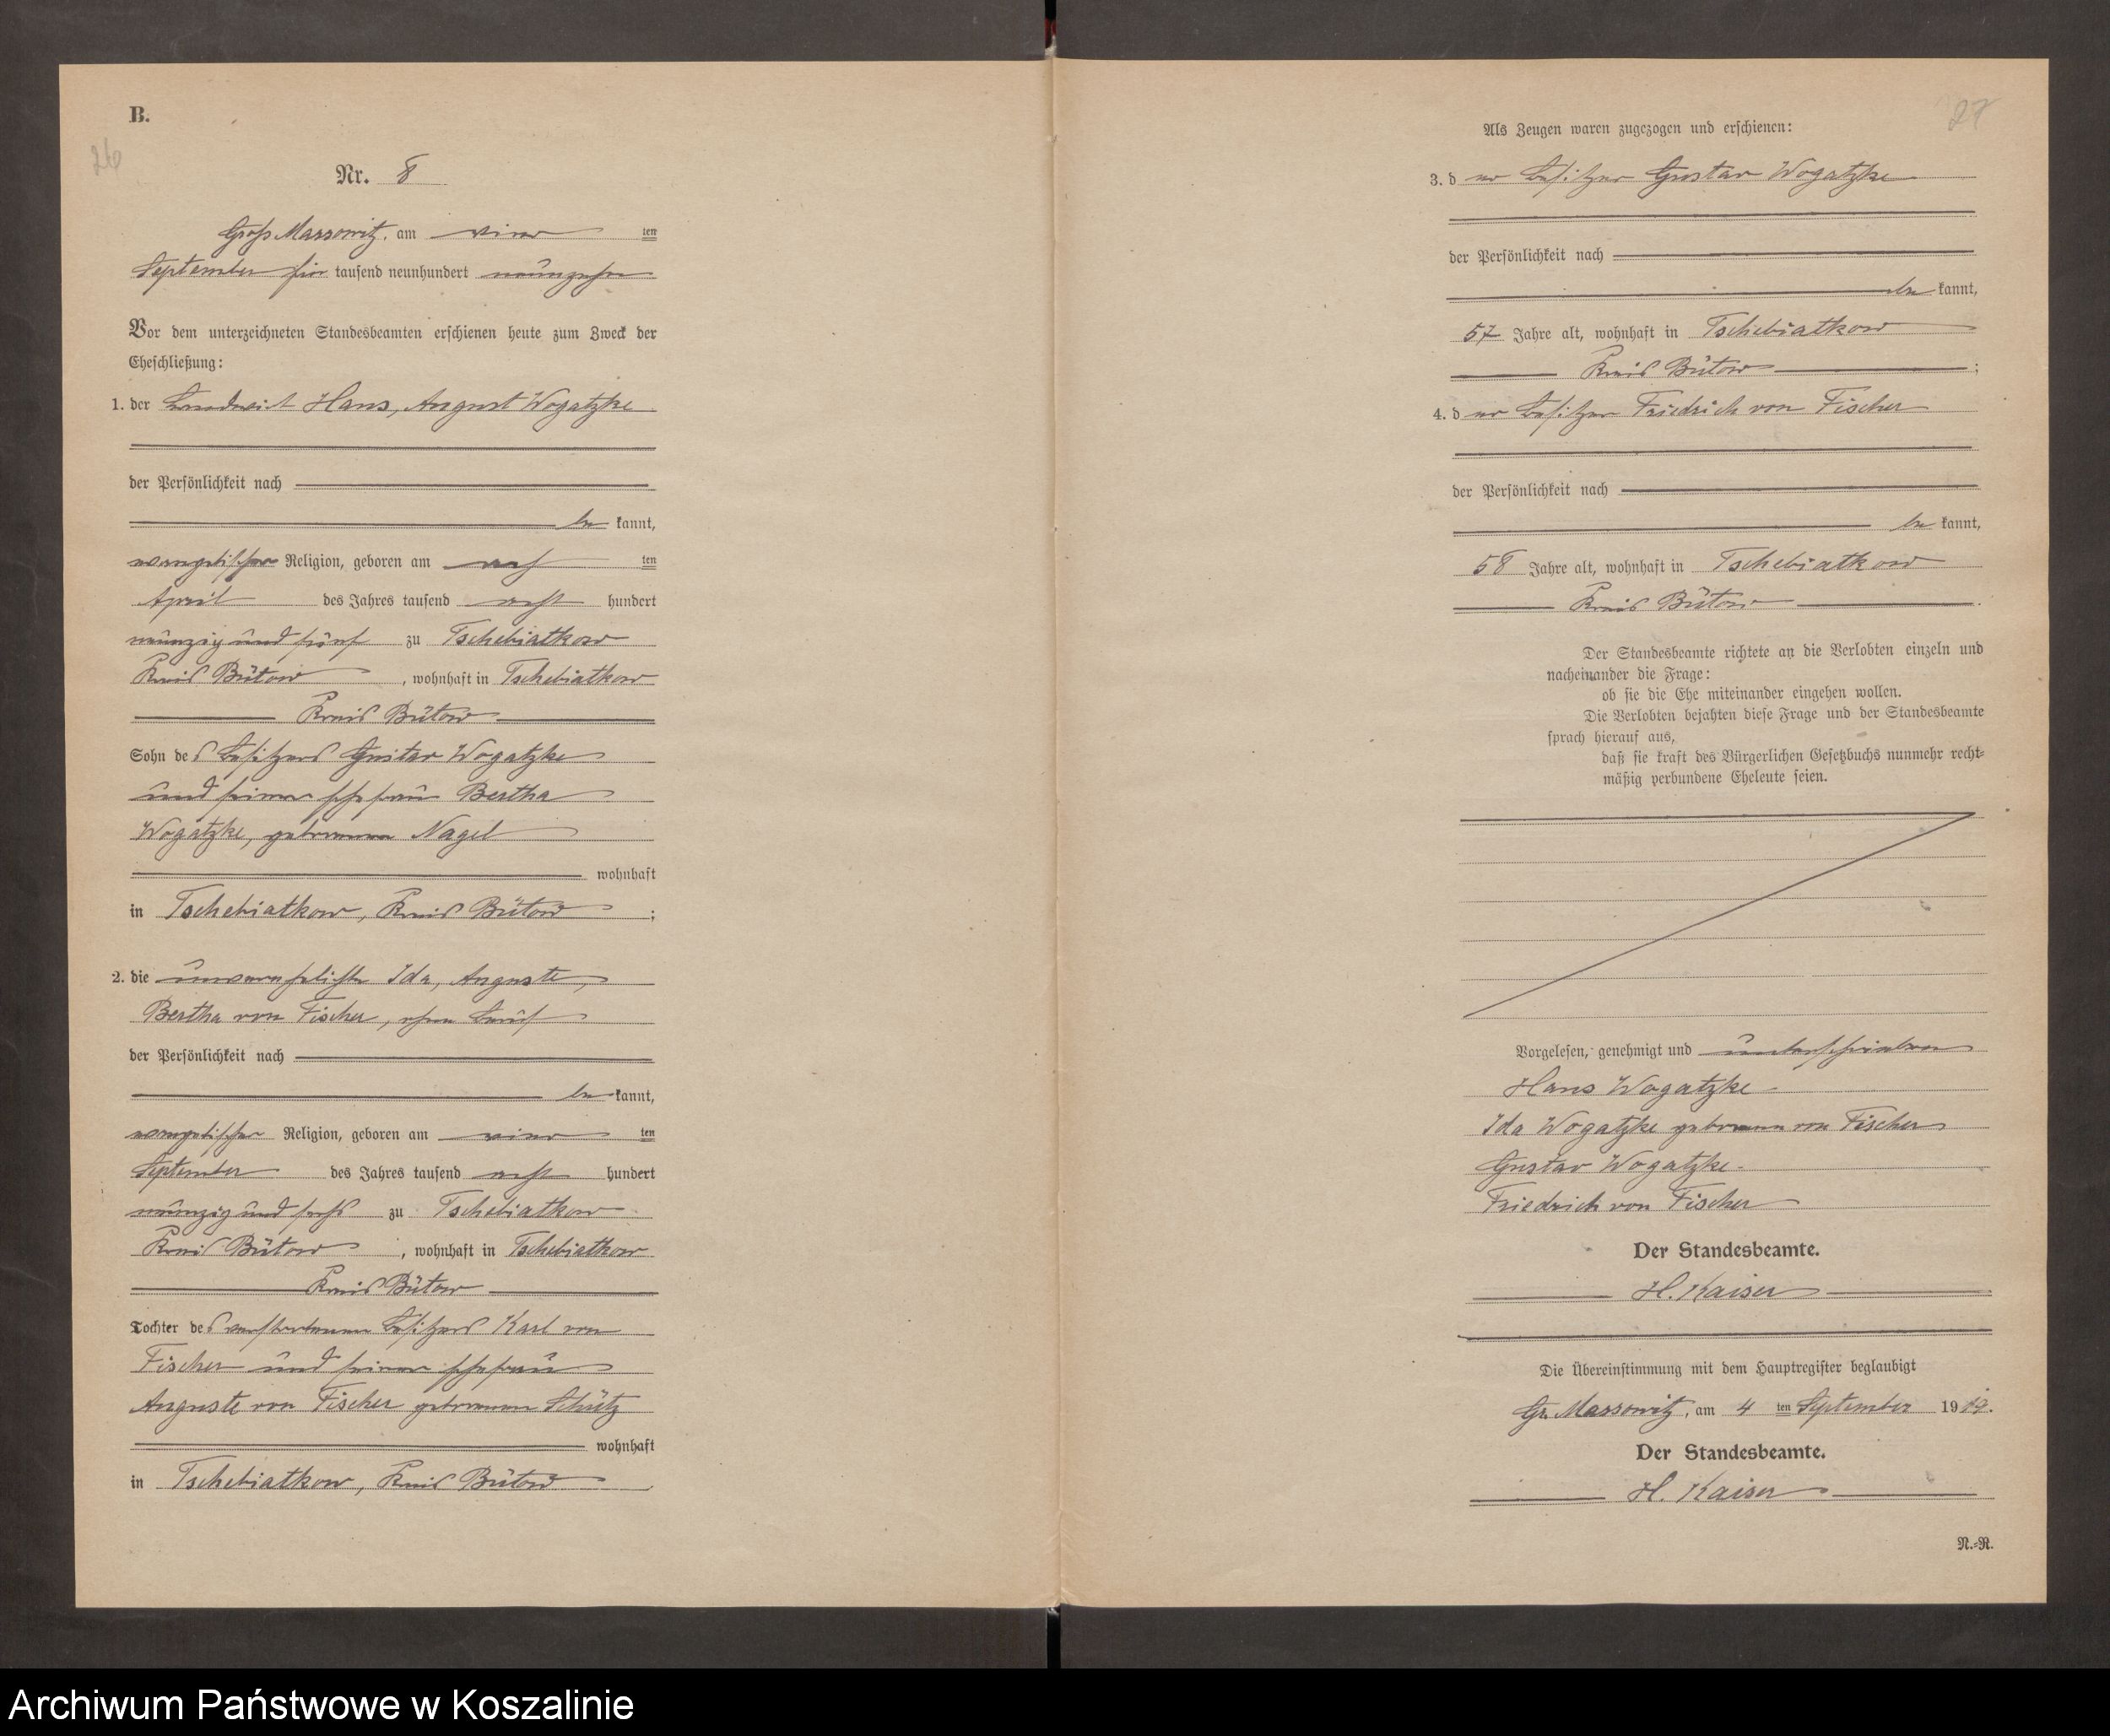 B.
26
Nr. 8
Groß Massowitz, am vier ten
September ein tausend neunhundert neunzehn
Vor dem unterzeichneten Standesbeamten erschienen heute zum Zweck der
Eheschließung:
1. der Landwirt Hans, August Wogatzke
der Persönlichkeit nach
be kannt,
evangelischer Religion, geboren am acht ten
April des Jahres tausend acht hundert
neunzig und fünf zu Tschebiatkow
Kreis Bütow, wohnhaft in Tschebiatkow
Kreis Bütow
Sohn des Besitzers Gustav Wogatzke
und seiner Ehefrau Bertha
Wogatzke, geborenen Nagel
wohnhaft
in Tschebiatkow, Kreis Bütow;
2. die unverehelichte Ida, Auguste,
Bertha von Fischer, ohne Beruf
der Persönlichkeit nach
be kannt,
evangelischer Religion, geboren am vier ten
September des Jahres tausend acht hundert
neunzig und sechs zu Tschebiatkow
Kreis Bütow, wohnhaft in Tschebiatkow
Kreis Bütow
Tochter des verstorbenen Besitzers Karl von
Fischer und seiner Ehefrau
Auguste von Fischer geborenen Schütz
wohnhaft
in Tschebiatkow, Kreis Bütow.
27
Als Zeugen waren zugezogen und erschienen:
3. d er Besitzer Gustav Wogatzke
der Persönlichkeit nach
be kannt,
57 Jahre alt, wohnhaft in Tschebiatkow
Kreis Bütow;
4. d er Besitzer Friedrich von Fischer
der Persönlichkeit nach
be kannt,
58 Jahre alt, wohnhaft in Tschebiatkow
Kreis Bütow.
Der Standesbeamte richtete an die Verlobten einzeln und
nacheinander die Frage:
ob sie die Ehe miteinander eingehen wollen.
Die Verlobten bejahten diese Frage und der Standesbeamte
sprach hierauf aus,
daß sie kraft des Bürgerlichen Gesetzbuchs nunmehr recht-
mäßig verbundene Eheleute seien.
Vorgelesen, genehmigt und unterschrieben
Hans Wogatzke
Ida Wogatzke geborene von Fischer
Gustav Wogatzke.
Friedrich von Fischer
Der Standesbeamte.
H. Kaiser
Die Übereinstimmung mit dem Hauptregister beglaubigt
Gr. Massowitz, am 4 ten September 1919.
Der Standesbeamte.
H. Kaiser
N.-R.
Archiwum Państwowe w Koszalinie